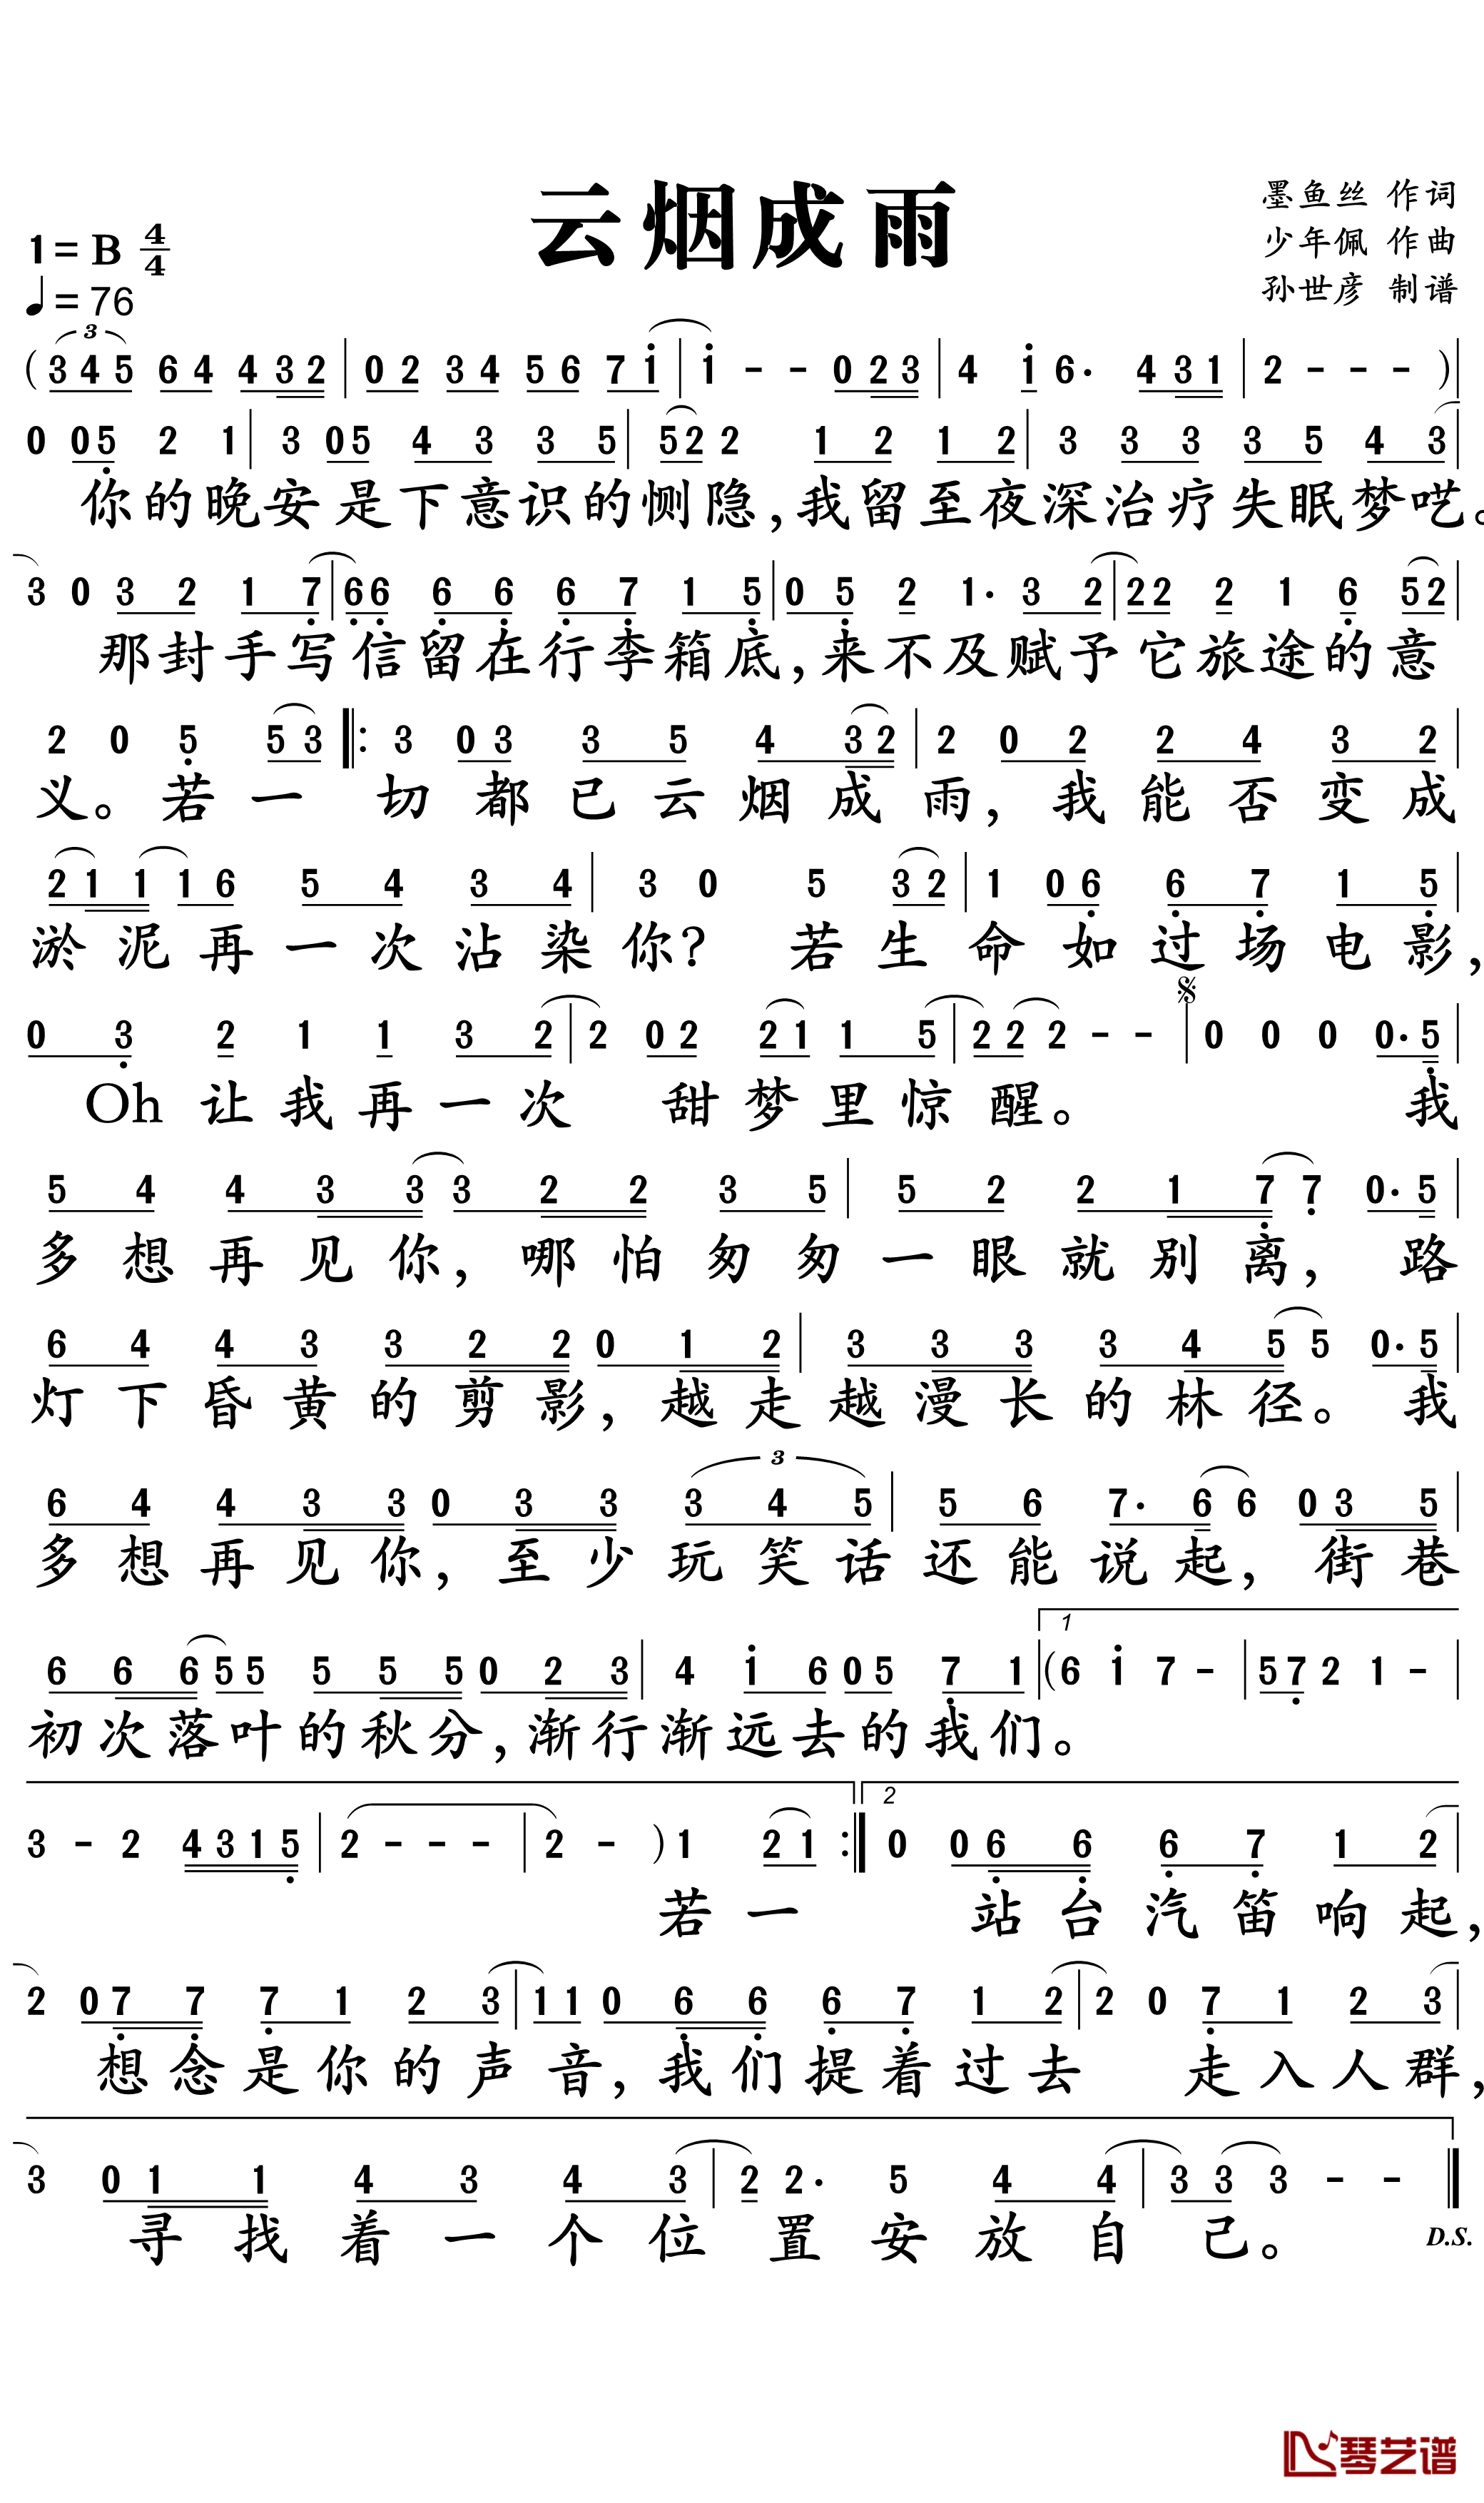 云烟成雨
墨鱼丝 作词
少年佩 作曲
孙世彦 制谱
1=B 4/4
♩=76
(3 4 5 6 4 4 3 2 | 0 2 3 4 5 6 7 i | i - - 0 2 3 | 4 i 6· 4 3 1 | 2 - - - )|
0 0 5 2 1 | 3 0 5 4 3 3 5 | 5 2 2 1 2 1 2 | 3 3 3 3 5 4 3 |
你的晚安是下意识的恻隐,我留至夜深治疗失眠梦呓。
3 0 3 2 1 7 | 6 6 6 6 6 7 1 5 | 0 5 2 1· 3 2 | 2 2 2 1 6 5 2 |
那封手写信留在行李箱底,来不及赋予它旅途的意
2 0 5 5 3 |: 3 0 3 3 5 4 3 2 | 2 0 2 2 4 3 2 |
义。若一 切都已云烟成雨,我能否变成
2 1 1 1 6 5 4 3 4 | 3 0 5 3 2 | 1 0 6 6 7 1 5 |
淤泥再一次沾染你? 若生命如过场电影,
0 3 2 1 1 3 2 | 2 0 2 2 1 1 5 | 2 2 2 - - | 0 0 0 0· 5 |
Oh 让我再一次 甜梦里惊醒。 我
5 4 4 3 3 3 2 2 3 5 | 5 2 2 1 7 7 0· 5 |
多想再见你,哪怕匆匆一眼就别离, 路
6 4 4 3 3 2 2 0 1 2 | 3 3 3 3 4 5 5 0· 5 |
灯下昏黄的剪影,越走越漫长的林径。我
6 4 4 3 3 0 3 3 3 4 5 | 5 6 7· 6 6 0 3 5 |
多想再见你,至少玩笑话还能说起,街巷
6 6 6 5 5 5 5 5 0 2 3 | 4 i 6 0 5 7 1 | 1 (6 i 7 - | 5 7 2 1 - |
初次落叶的秋分,渐行渐远去的我们。
3 - 2 4 3 1 5 | 2 - - - | 2 - ) 1 2 1 :| 2 0 0 6 6 6 7 1 2 |
若一 站台汽笛响起,
2 0 7 7 7 1 2 3 | 1 1 0 6 6 6 7 1 2 | 2 0 7 1 2 3 |
想念是你的声音,我们提着过去 走入人群,
3 0 1 1 4 3 4 3 | 2 2· 5 4 4 | 3 3 3 - - ‖
寻找着一个位置安放自己。 D.S.
琴艺谱